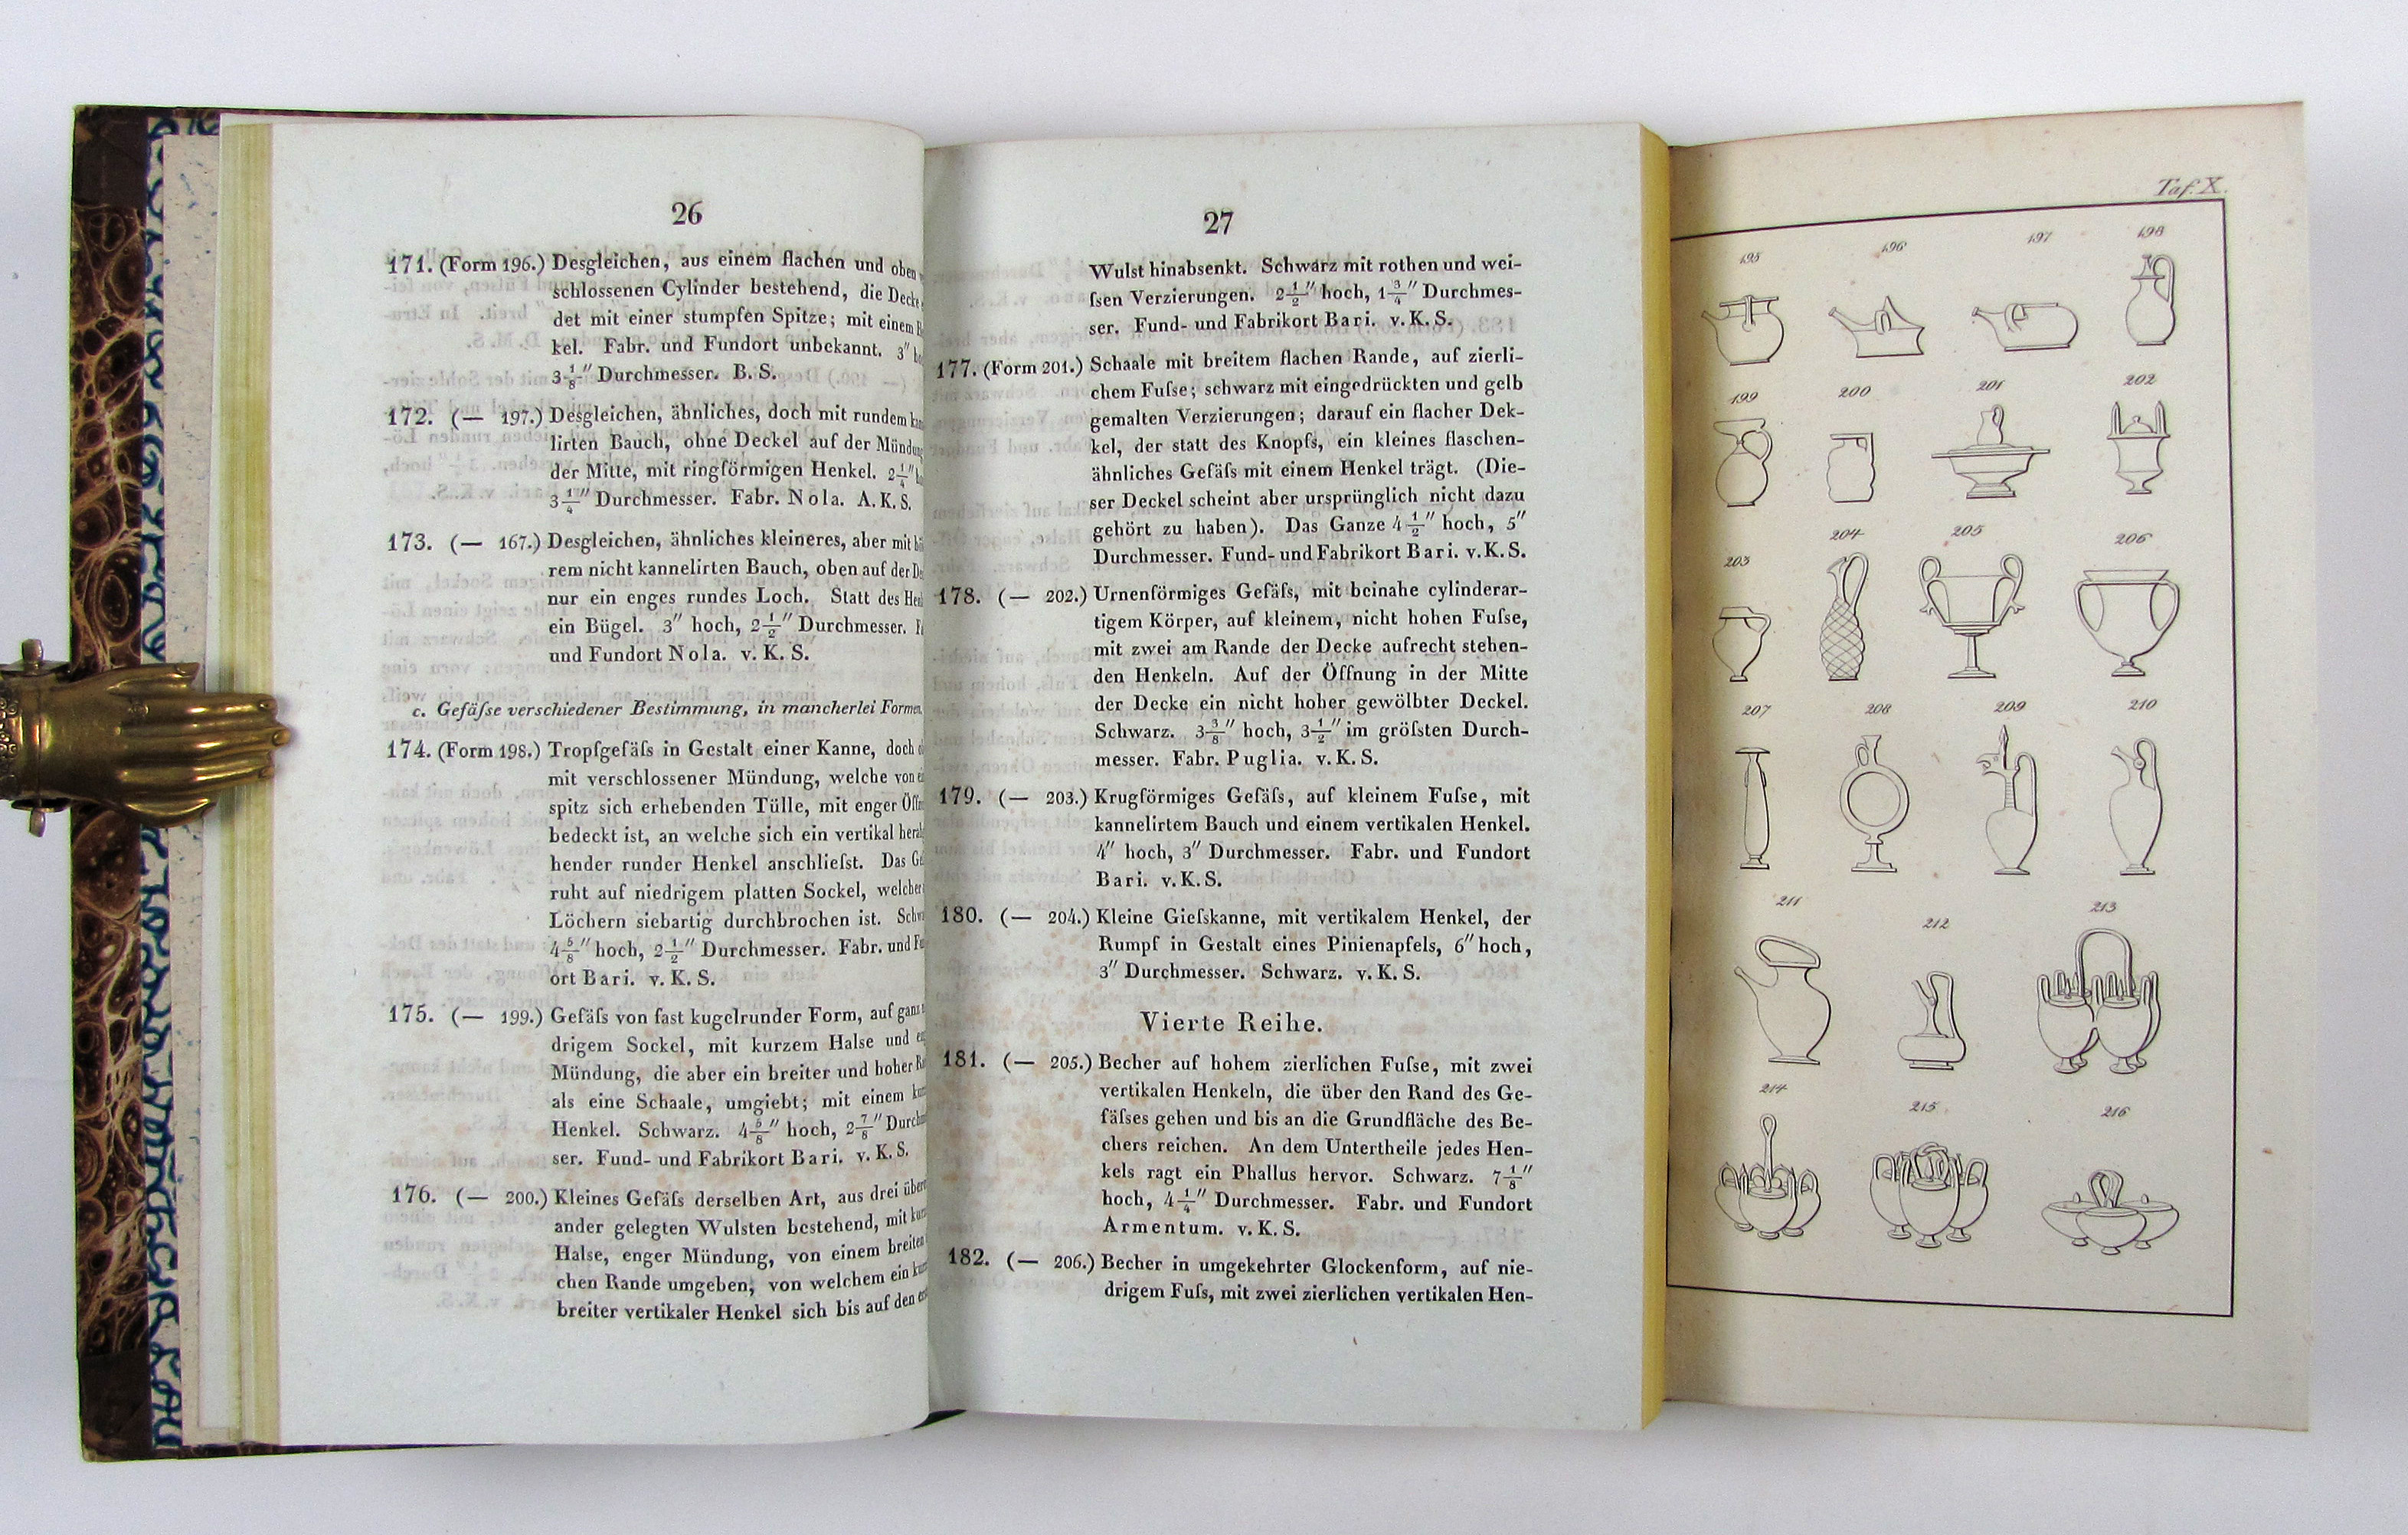 26
171. (Form 196.) Desgleichen, aus einem flachen und oben
schlossenen Cylinder bestehend, die Decke
det mit einer stumpfen Spitze; mit einem
kel. Fabr. und Fundort unbekannt. 3″
3 1/8″ Durchmesser. B. S.
172. (— 197.) Desgleichen, ähnliches, doch mit rundem
lirten Bauch, ohne Deckel auf der Mündung
der Mitte, mit ringförmigen Henkel. 2 1/4″
3 1/4″ Durchmesser. Fabr. Nola. A. K. S.
173. (— 167.) Desgleichen, ähnliches kleineres, aber mit
rem nicht kannelirten Bauch, oben auf der
nur ein enges rundes Loch. Statt des
ein Bügel. 3″ hoch, 2 1/2″ Durchmesser.
und Fundort Nola. v. K. S.
c. Gefäſse verschiedener Bestimmung, in mancherlei Formen.
174. (Form 198.) Tropfgefäſs in Gestalt einer Kanne, doch
mit verschlossener Mündung, welche von
spitz sich erhebenden Tülle, mit enger
bedeckt ist, an welche sich ein vertikal
hender runder Henkel anschlieſst. Das
ruht auf niedrigem platten Sockel, welcher
Löchern siebartig durchbrochen ist.
4 5/8″ hoch, 2 1/2″ Durchmesser. Fabr. und
ort Bari. v. K. S.
175. (— 199.) Gefäſs von fast kugelrunder Form, auf ganz
drigem Sockel, mit kurzem Halse und
Mündung, die aber ein breiter und hoher
als eine Schaale, umgiebt; mit einem
Henkel. Schwarz. 4 5/8″ hoch, 2 7/8″
ser. Fund- und Fabrikort Bari. v. K. S.
176. (— 200.) Kleines Gefäſs derselben Art, aus drei
ander gelegten Wulsten bestehend, mit
Halse, enger Mündung, von einem breiten
chen Rande umgeben, von welchem ein
breiter vertikaler Henkel sich bis auf den
27
Wulst hinabsenkt. Schwarz mit rothen und wei-
ſsen Verzierungen. 2 1/2″ hoch, 1 3/4″ Durchmes-
ser. Fund- und Fabrikort Bari. v. K. S.
177. (Form 201.) Schaale mit breitem flachen Rande, auf zierli-
chem Fuſse; schwarz mit eingedrückten und gelb
gemalten Verzierungen; darauf ein flacher Dek-
kel, der statt des Knopfs, ein kleines flaschen-
ähnliches Gefäſs mit einem Henkel trägt. (Die-
ser Deckel scheint aber ursprünglich nicht dazu
gehört zu haben). Das Ganze 4 1/2″ hoch, 5″
Durchmesser. Fund- und Fabrikort Bari. v. K. S.
178. (— 202.) Urnenförmiges Gefäſs, mit beinahe cylinderar-
tigem Körper, auf kleinem, nicht hohen Fuſse,
mit zwei am Rande der Decke aufrecht stehen-
den Henkeln. Auf der Öffnung in der Mitte
der Decke ein nicht hoher gewölbter Deckel.
Schwarz. 3 3/8″ hoch, 3 1/2″ im gröſsten Durch-
messer. Fabr. Puglia. v. K. S.
179. (— 203.) Krugförmiges Gefäſs, auf kleinem Fuſse, mit
kannelirtem Bauch und einem vertikalen Henkel.
4″ hoch, 3″ Durchmesser. Fabr. und Fundort
Bari. v. K. S.
180. (— 204.) Kleine Gieſskanne, mit vertikalem Henkel, der
Rumpf in Gestalt eines Pinienapfels, 6″ hoch,
3″ Durchmesser. Schwarz. v. K. S.
Vierte Reihe.
181. (— 205.) Becher auf hohem zierlichen Fuſse, mit zwei
vertikalen Henkeln, die über den Rand des Ge-
fäſses gehen und bis an die Grundfläche des Be-
chers reichen. An dem Untertheile jedes Hen-
kels ragt ein Phallus hervor. Schwarz. 7 1/8″
hoch, 4 1/4″ Durchmesser. Fabr. und Fundort
Armentum. v. K. S.
182. (— 206.) Becher in umgekehrter Glockenform, auf nie-
drigem Fuſs, mit zwei zierlichen vertikalen Hen-
Taf. X.
195 196 197 198
199 200 201 202
203 204 205 206
207 208 209 210
211 212 213
214 215 216